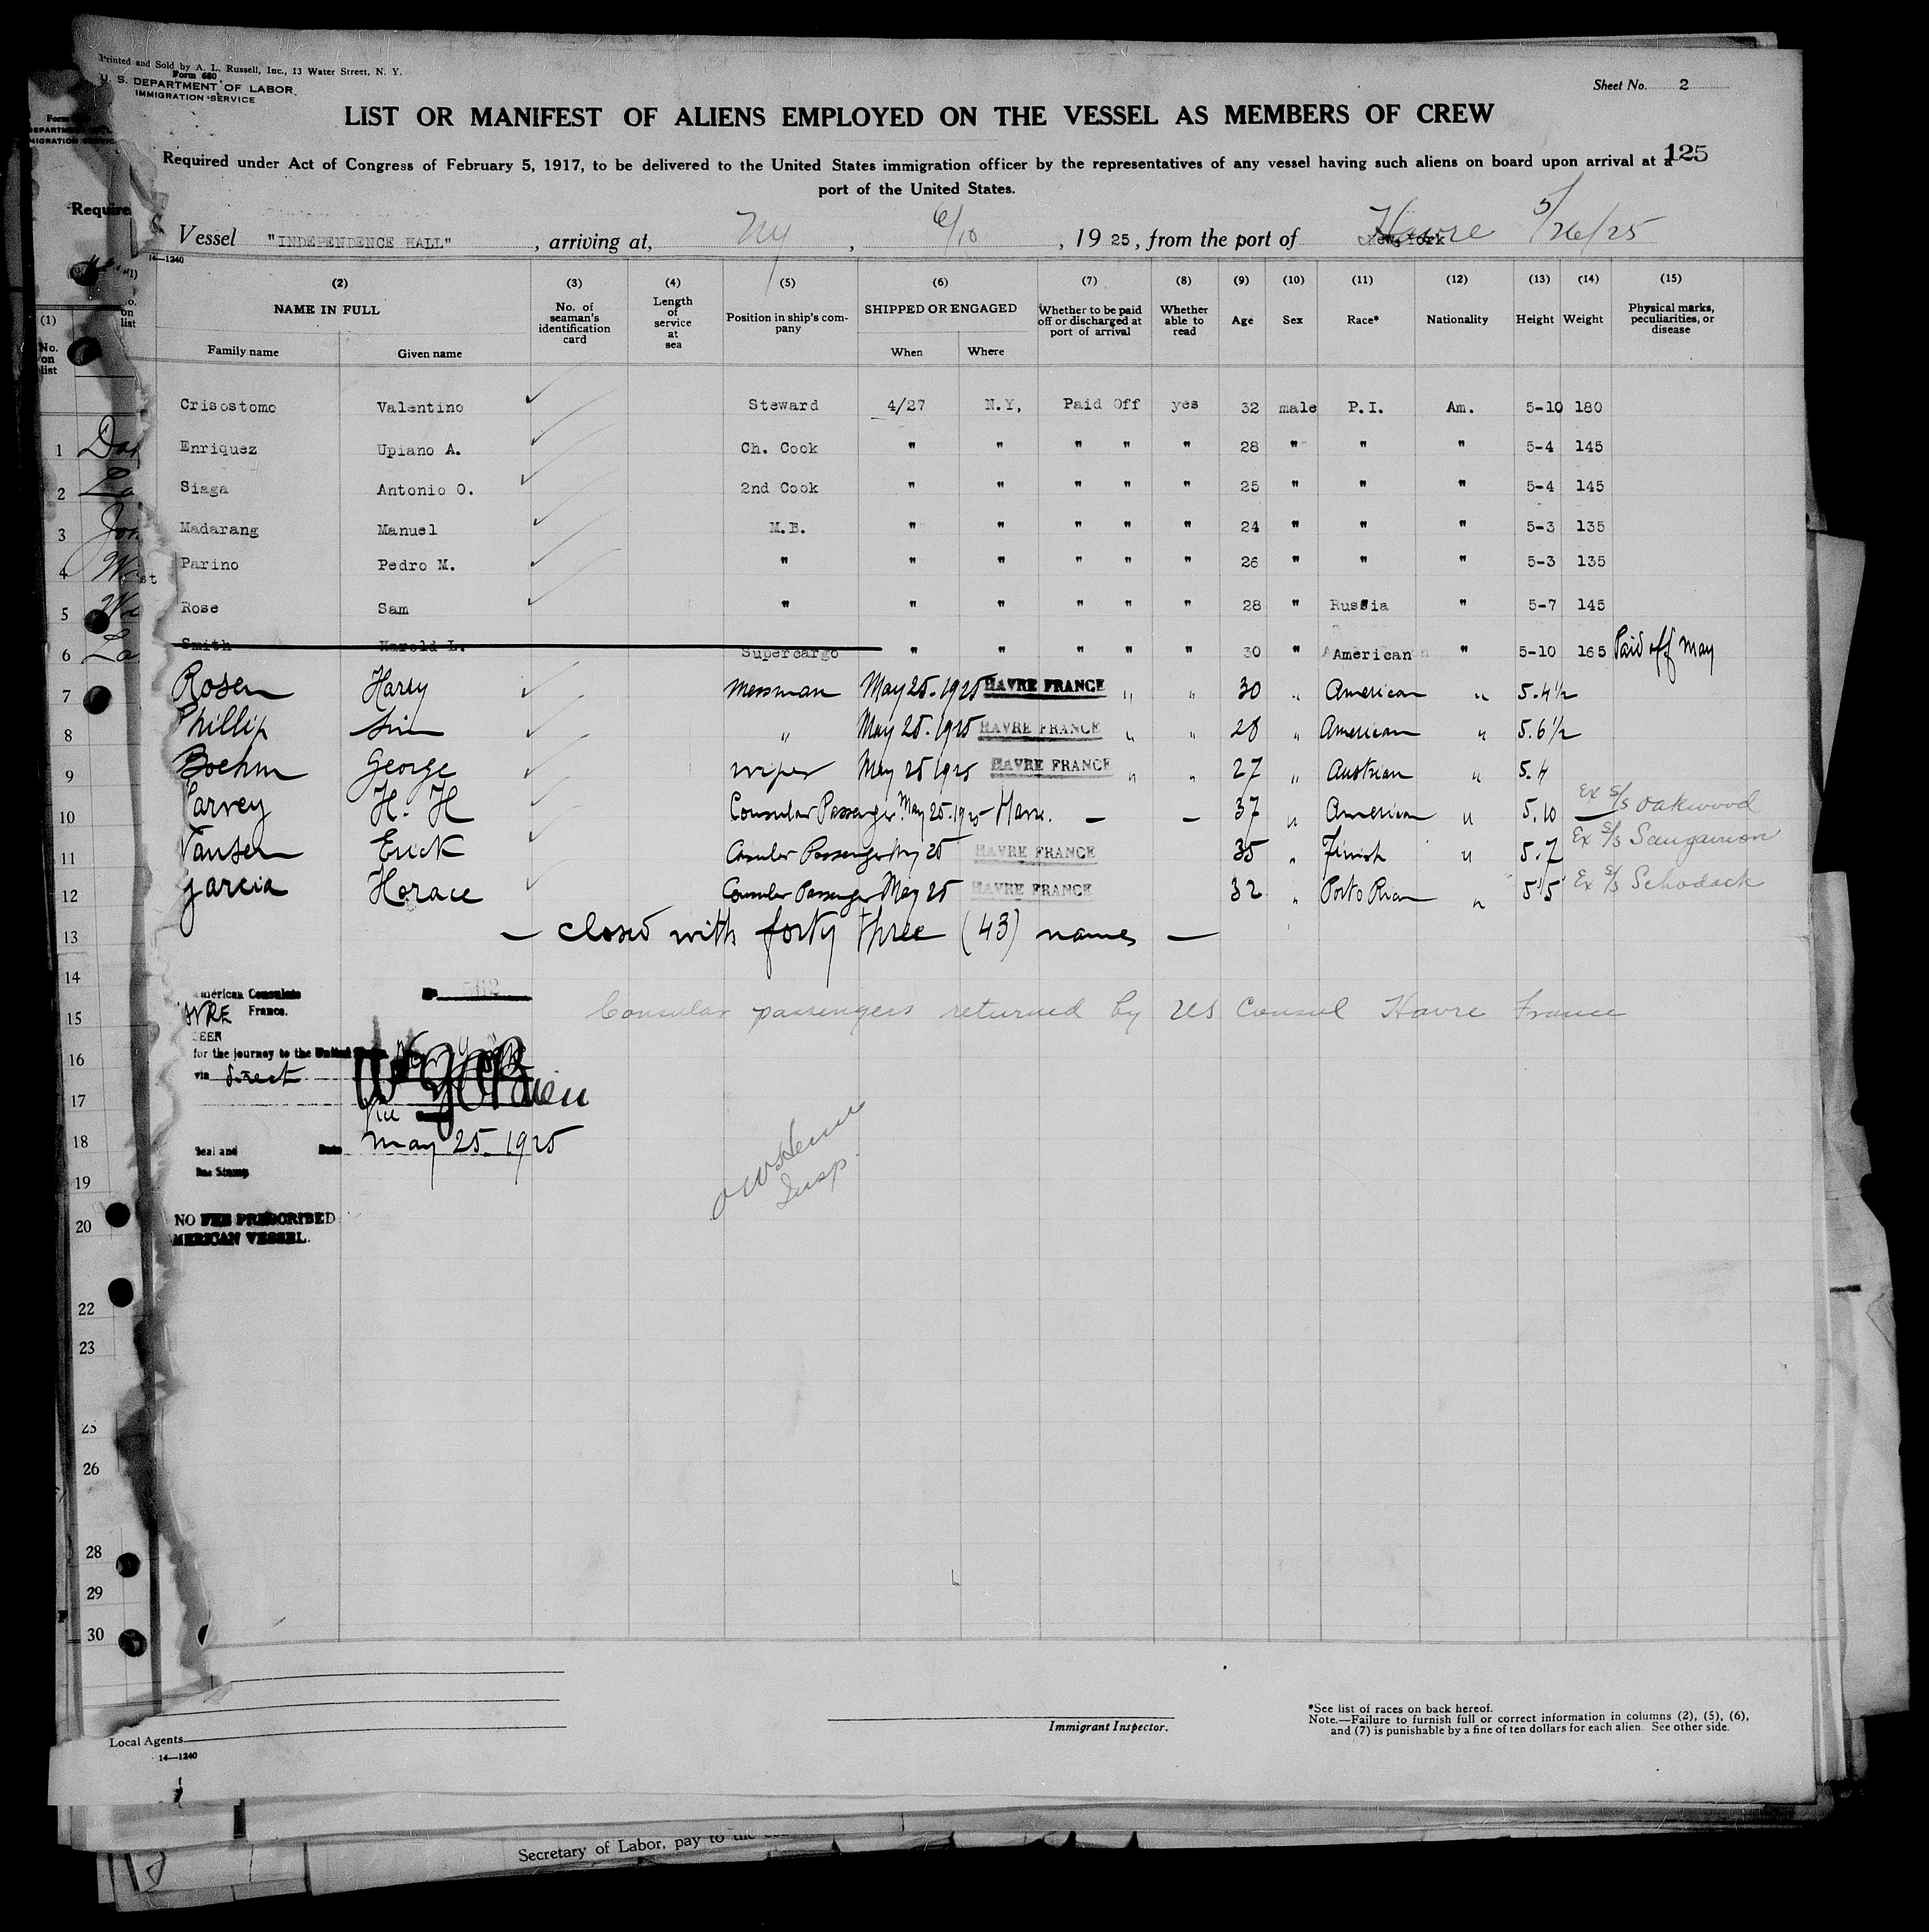 Printed and Sold by A. L. Russell, Inc., 13 Water Street, N. Y.
Form 680
U. S. DEPARTMENT OF LABOR
IMMIGRATION SERVICE
Sheet No. 2
LIST OR MANIFEST OF ALIENS EMPLOYED ON THE VESSEL AS MEMBERS OF CREW
125
Required under Act of Congress of February 5, 1917, to be delivered to the United States immigration officer by the representatives of any vessel having such aliens on board upon arrival at a
port of the United States.
Vessel "INDEPENDENCE HALL", arriving at, NY, 6/10, 1925, from the port of New York Havre 5/26/25
14—1240
(1) No. on list (2) NAME IN FULL Family name Given name (3) No. of seaman's identification card (4) Length of service at sea (5) Position in ship's company (6) SHIPPED OR ENGAGED When Where (7) Whether to be paid off or discharged at port of arrival (8) Whether able to read (9) Age (10) Sex (11) Race* (12) Nationality (13) Height (14) Weight (15) Physical marks, peculiarities, or disease
Crisostomo Valentino Steward 4/27 N.Y, Paid Off yes 32 male P.I. Am. 5-10 180
1 Enriquez Upiano A. Ch. Cook " " " " " 28 " " " 5-4 145
2 Siaga Antonio O. 2nd Cook " " " " " 25 " " " 5-4 145
3 Madarang Manuel M.B. " " " " " 24 " " " 5-3 135
4 Parino Pedro M. " " " " " " 26 " " " 5-3 135
5 Rose Sam " " " " " " 28 " Russia " 5-7 145
6 Smith Harold L. Supercargo " " " " " 30 " American " 5-10 165 Paid off May
7 Rosen Harry Messman May 25. 1925 HAVRE FRANCE " " 30 " American " 5.4½
8 Phillip Sim " May 25. 1925 HAVRE FRANCE " " 28 " American " 5.6½
9 Boehm George Wiper May 25 1925 HAVRE FRANCE " " 27 " Austrian " 5.4
10 Harvey H. H Consular Passenger May 25. 1925 — Havre. — — 37 " American " 5.10 — Ex S/S Oakwood
11 Erick Consular Passenger May 25 HAVRE FRANCE 35 " Finish " 5.7 Ex S/S
12 Garcia Horace Consular Passenger May 25 HAVRE FRANCE 32 " Porto Rican " 5'5" Ex S/S Schodack
13 — closed with forty three (43) names —
14
American Consulate
HAVRE France.
15 Consular passengers returned by US Consul Havre France
SEEN
for the journey to the United States
16
via direct
17
Vice
18
May 25. 1925
Seal and Date
Fee Stamp
Insp.
19
20
NO FEE PRESCRIBED
AMERICAN VESSEL.
22
23
25
26
28
29
30
Local Agents
14—1240
Immigrant Inspector.
*See list of races on back hereof.
Note.—Failure to furnish full or correct information in columns (2), (5), (6),
and (7) is punishable by a fine of ten dollars for each alien. See other side.
Secretary of Labor, pay to the